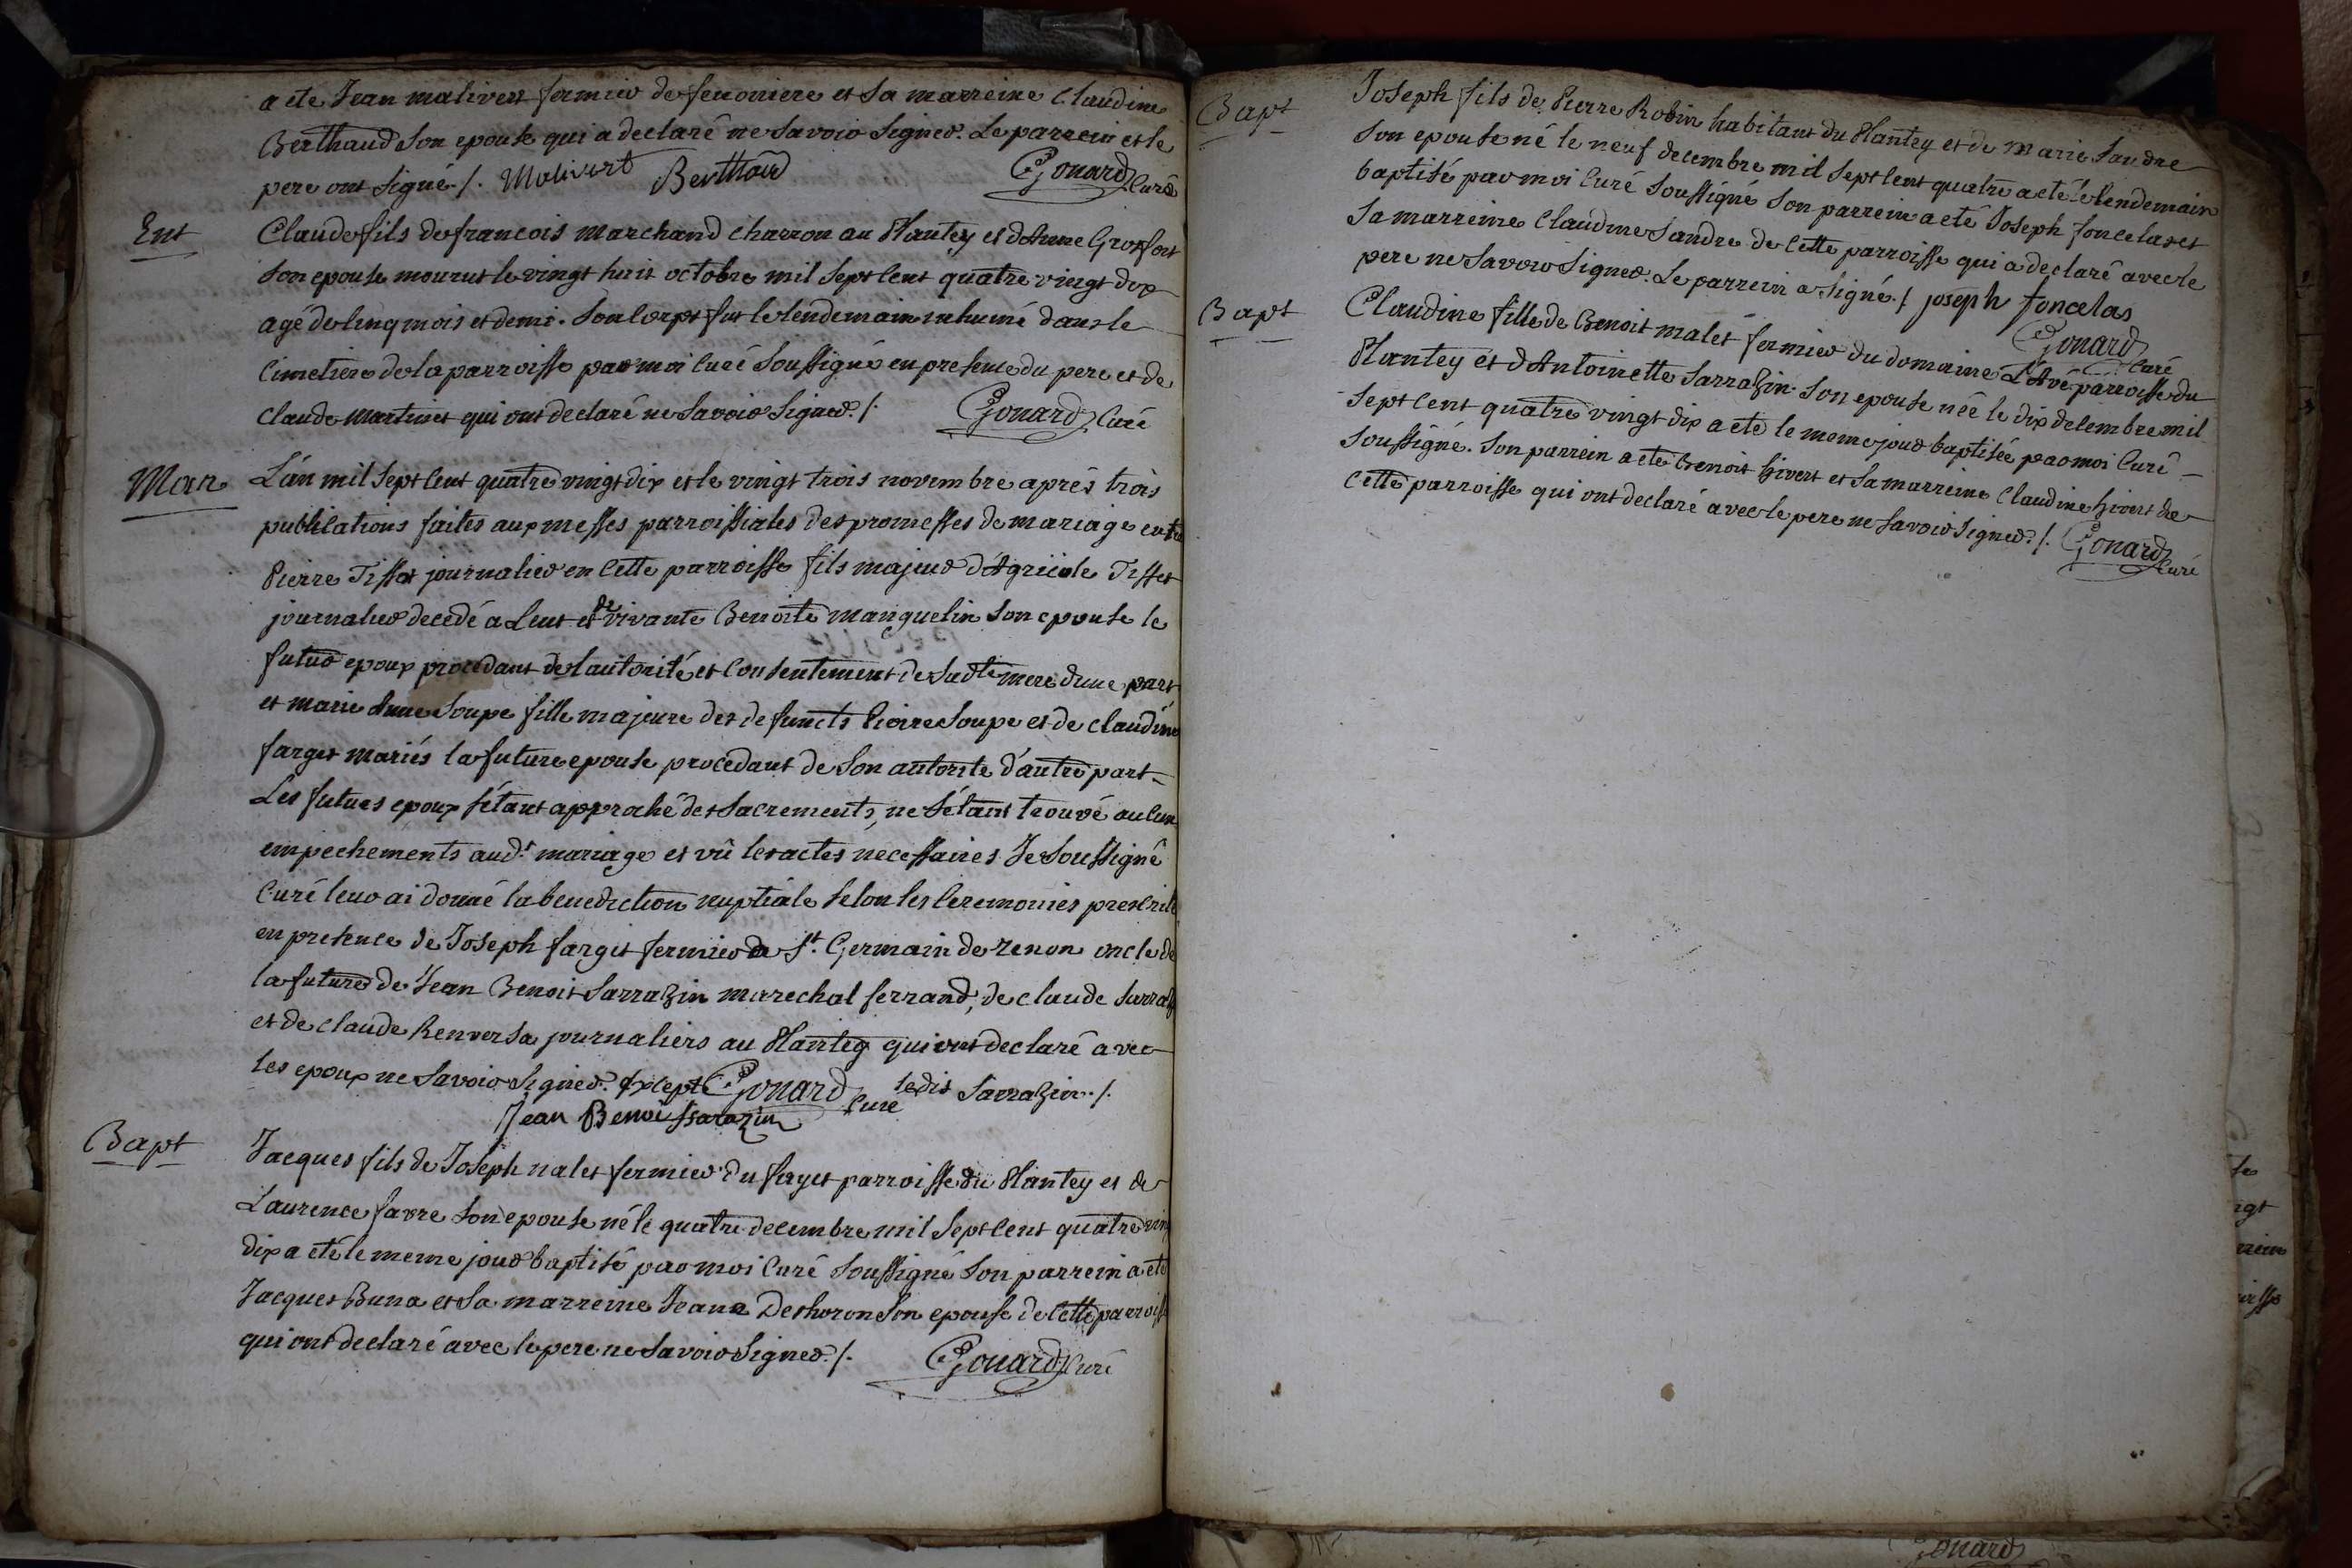 a eté Jean malivert fermier de fenoniere et sa marreine Claudine
Berthaud son epouse qui a declaré ne savoir signer. Le parrein et le
pere ont signé ./. Malivert Berthaud Gonard Curé
Ent
Claude fils de francois marchand charron au Plantey et d'Anne Grosfort
son epouse mourut le vingt huit octobre mil sept cent quatre vingt dix
agé de cinq mois et demi. Son corps fut le lendemain inhumé dans le
cimetiere de la parroisse par moi curé soussigné en presence du pere et de
Claude Martinet qui ont declaré ne savoir signer ./. Gonard Curé
Mar
L'an mil sept cent quatre vingt dix et le vingt trois novembre aprés trois
publications faites aux messes parroissiales des promesses de mariage entre
Pierre Tissot journalier en cette parroisse fils majeur d'Agricole Tissot
journalier decedé a Lent et de vivante Benoite manguelin son epouse le
futur epoux procedant de l'autorité et consentement de sadte mere d'une part
et marie Anne Soupe fille majeure des defuncts Pierre Soupe et de claudine
farget mariés la future epouse procedant de son autorité d'autre part
Les futurs epoux s'étant approché des sacrements, ne s'étant trouvé aucun
empechements audt mariage et vû les actes necessaires Je soussigné
Curé leur ai donné la benediction nuptiale selon les ceremonies prescrites
en presence de Joseph farget fermier de St. Germain de renon oncle de
la future de Jean Benoit Sarrazin marechal ferrand, de claude Sarrazin
et de claude Renversa journaliers au Plantey qui ont declaré avec
les epoux ne savoir signer. Excepté ledit Sarrazin ./. Gonard Curé
Jean Benoi Ssarazin
Bapt
Jacques fils de Joseph nalet fermier du fayet parroisse du Plantey et de
Laurence favre son epouse né le quatre decembre mil sept cent quatre vin
dix a eté le meme jour baptisé par moi Curé soussigné son parrein a eté
Jacques Buna et sa marreine Jeane Deshoron son epouse de cette parroisse
qui ont declaré avec le pere ne savoir signer ./. Gonard Curé
Bapt
Joseph fils de Pierre Robin habitant du Plantey et de Marie Sandre
son epouse né le neuf decembre mil sept cent quatre a eté le lendemain
baptisé par moi Curé soussigné son parrein a eté Joseph foncelas et
sa marreine Claudine Sandre de cette parroisse qui a declaré avec le
pere ne savoir signer. Le parrein a signé ./. joseph foncelas
Gonard Curé
Bapt
Claudine fille de Benoit malet fermier du domaine L'Avé parroisse du
Plantey et d'Antoinette Sarrazin son epouse née le dix decembre mil
sept cent quatre vingt dix a eté le meme jour baptisée par moi Curé
soussigné. Son parrein a eté Benoit hivert et sa marreine Claudine hivert de
cette parroisse qui ont declaré avec le pere ne savoir signer ./. Gonard
Curé